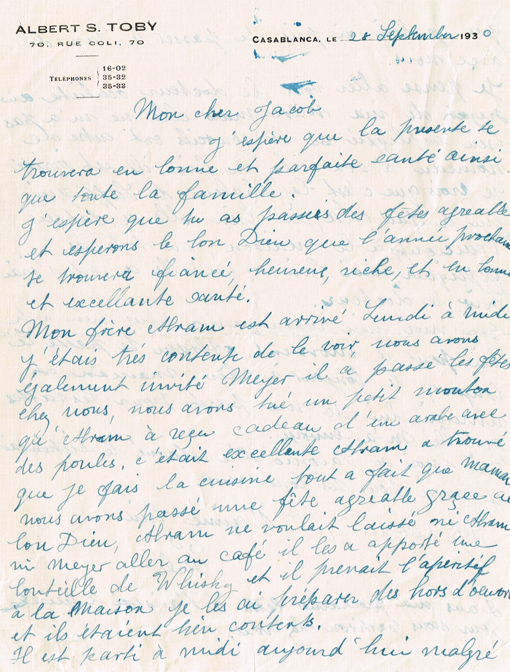 ALBERT S. TOBY
70, RUE COLI, 70
TÉLÉPHONES
16-02
35-32
35-33
CASABLANCA, LE 28 September 1930
Mon cher Jacob
j'espère que la presente te
trouvera en bonne et parfaite santé ainsi
que toute la famille.
j'espère que tu as passees des fêtes agreable
et esperons le bon Dieu que l'année prochain
te trouvera fiancé, heureux, riche, et en bonne
et excellante santé.
Mon frère Abram est arrivé Lundi à midi
j'étais très contente de le voir, nous avons
également invité Meyer il a passé les fêtes
chez nous, nous avons tué un petit mouton
qu'Abram à reçu cadeau d'un arabe avec
des poules, c'était excellente Abram a trouvé
que je fais la cuisine tout a fait que maman
nous avons passé une fête agreable grace au
bon Dieu, Abram ne voulait laissé ni Abram
ni Meyer aller au café il les a apporté une
bouteille de Whisky et il prenait l'apéritif
à la Maison je les ai préparer des hors d'œuvre
et ils étaient bien contents.
Il est parti à midi aujourd'hui malgré